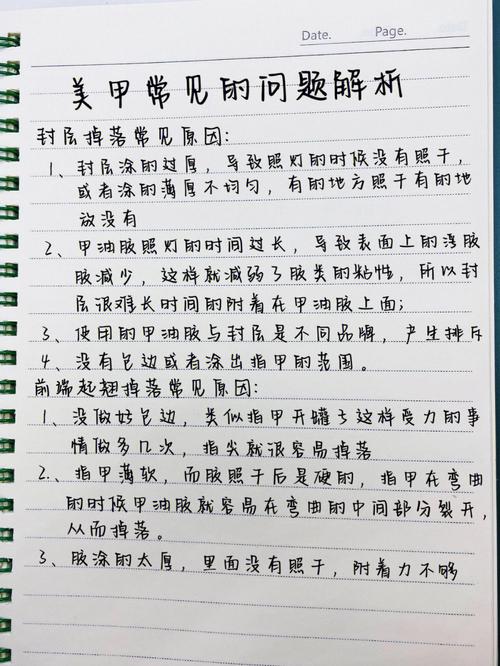 Date. Page.
美甲常见的问题解析
封层掉落常见原因:
1、封层涂的过厚,导致照灯的时候没有照干,
或者涂的薄厚不均匀,有的地方照干有的地
放没有
2、甲油胶照灯的时间过长,导致表面上的浮胶
胶减少,这样就减弱了胶类的粘性,所以封
层很难长时间的附着在甲油胶上面;
3、使用的甲油胶与封层是不同品牌,产生排斥
4、没有包边或者涂出指甲的范围。
前端起翘掉落常见原因:
1、没做好包边,类似指甲开罐子这样受力的事
情做多几次,指尖就很容易掉落
2、指甲薄软,而胶照干后是硬的,指甲在弯曲
的时候甲油胶就容易在弯曲的中间部分裂开,
从而掉落。
3、胶涂的太厚,里面没有照干,附着力不够